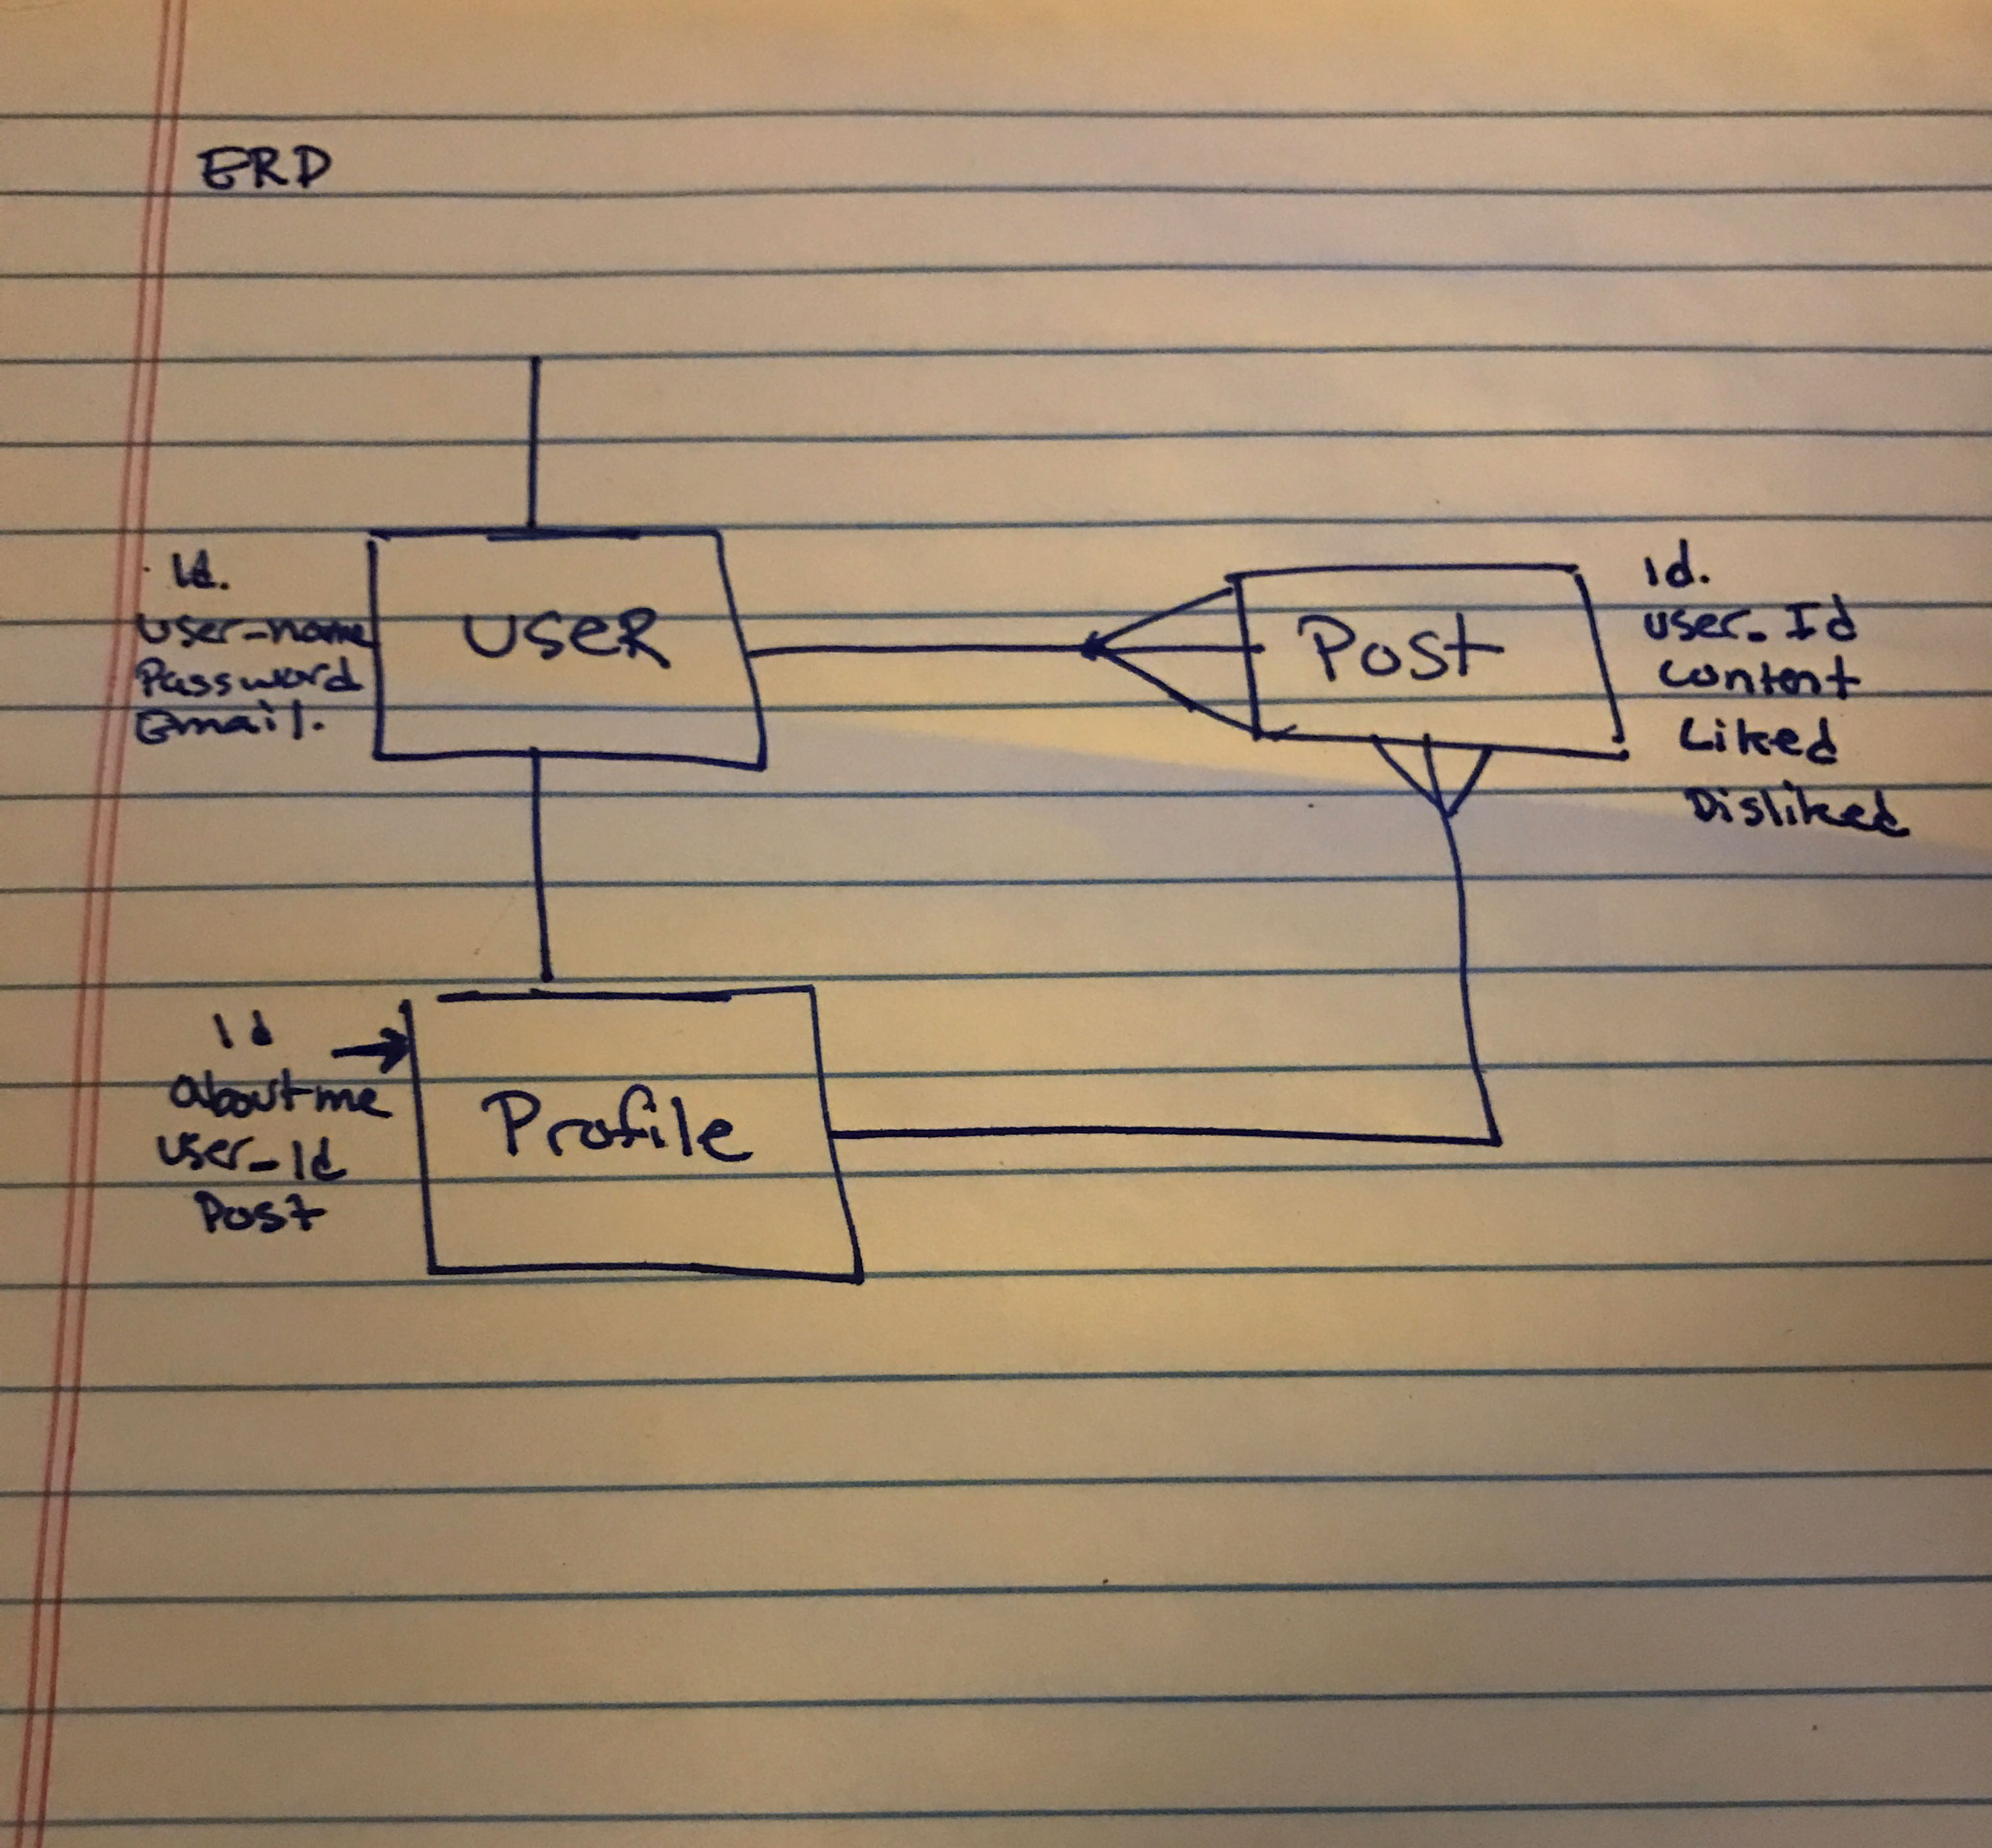 ERD
Id.
User-name
Password
Email.
USER
Post
id.
user-Id
Content
Liked
Disliked
Id
aboutme
user-Id
Post
Profile